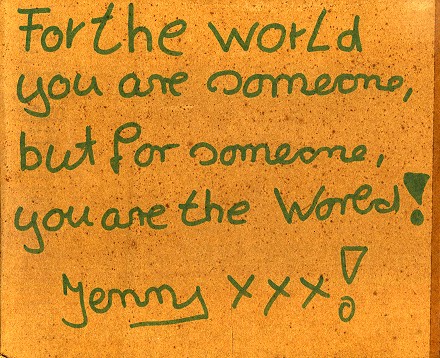 For the world
you are someone,
but for someone,
you are the World!
Jenny xxx!